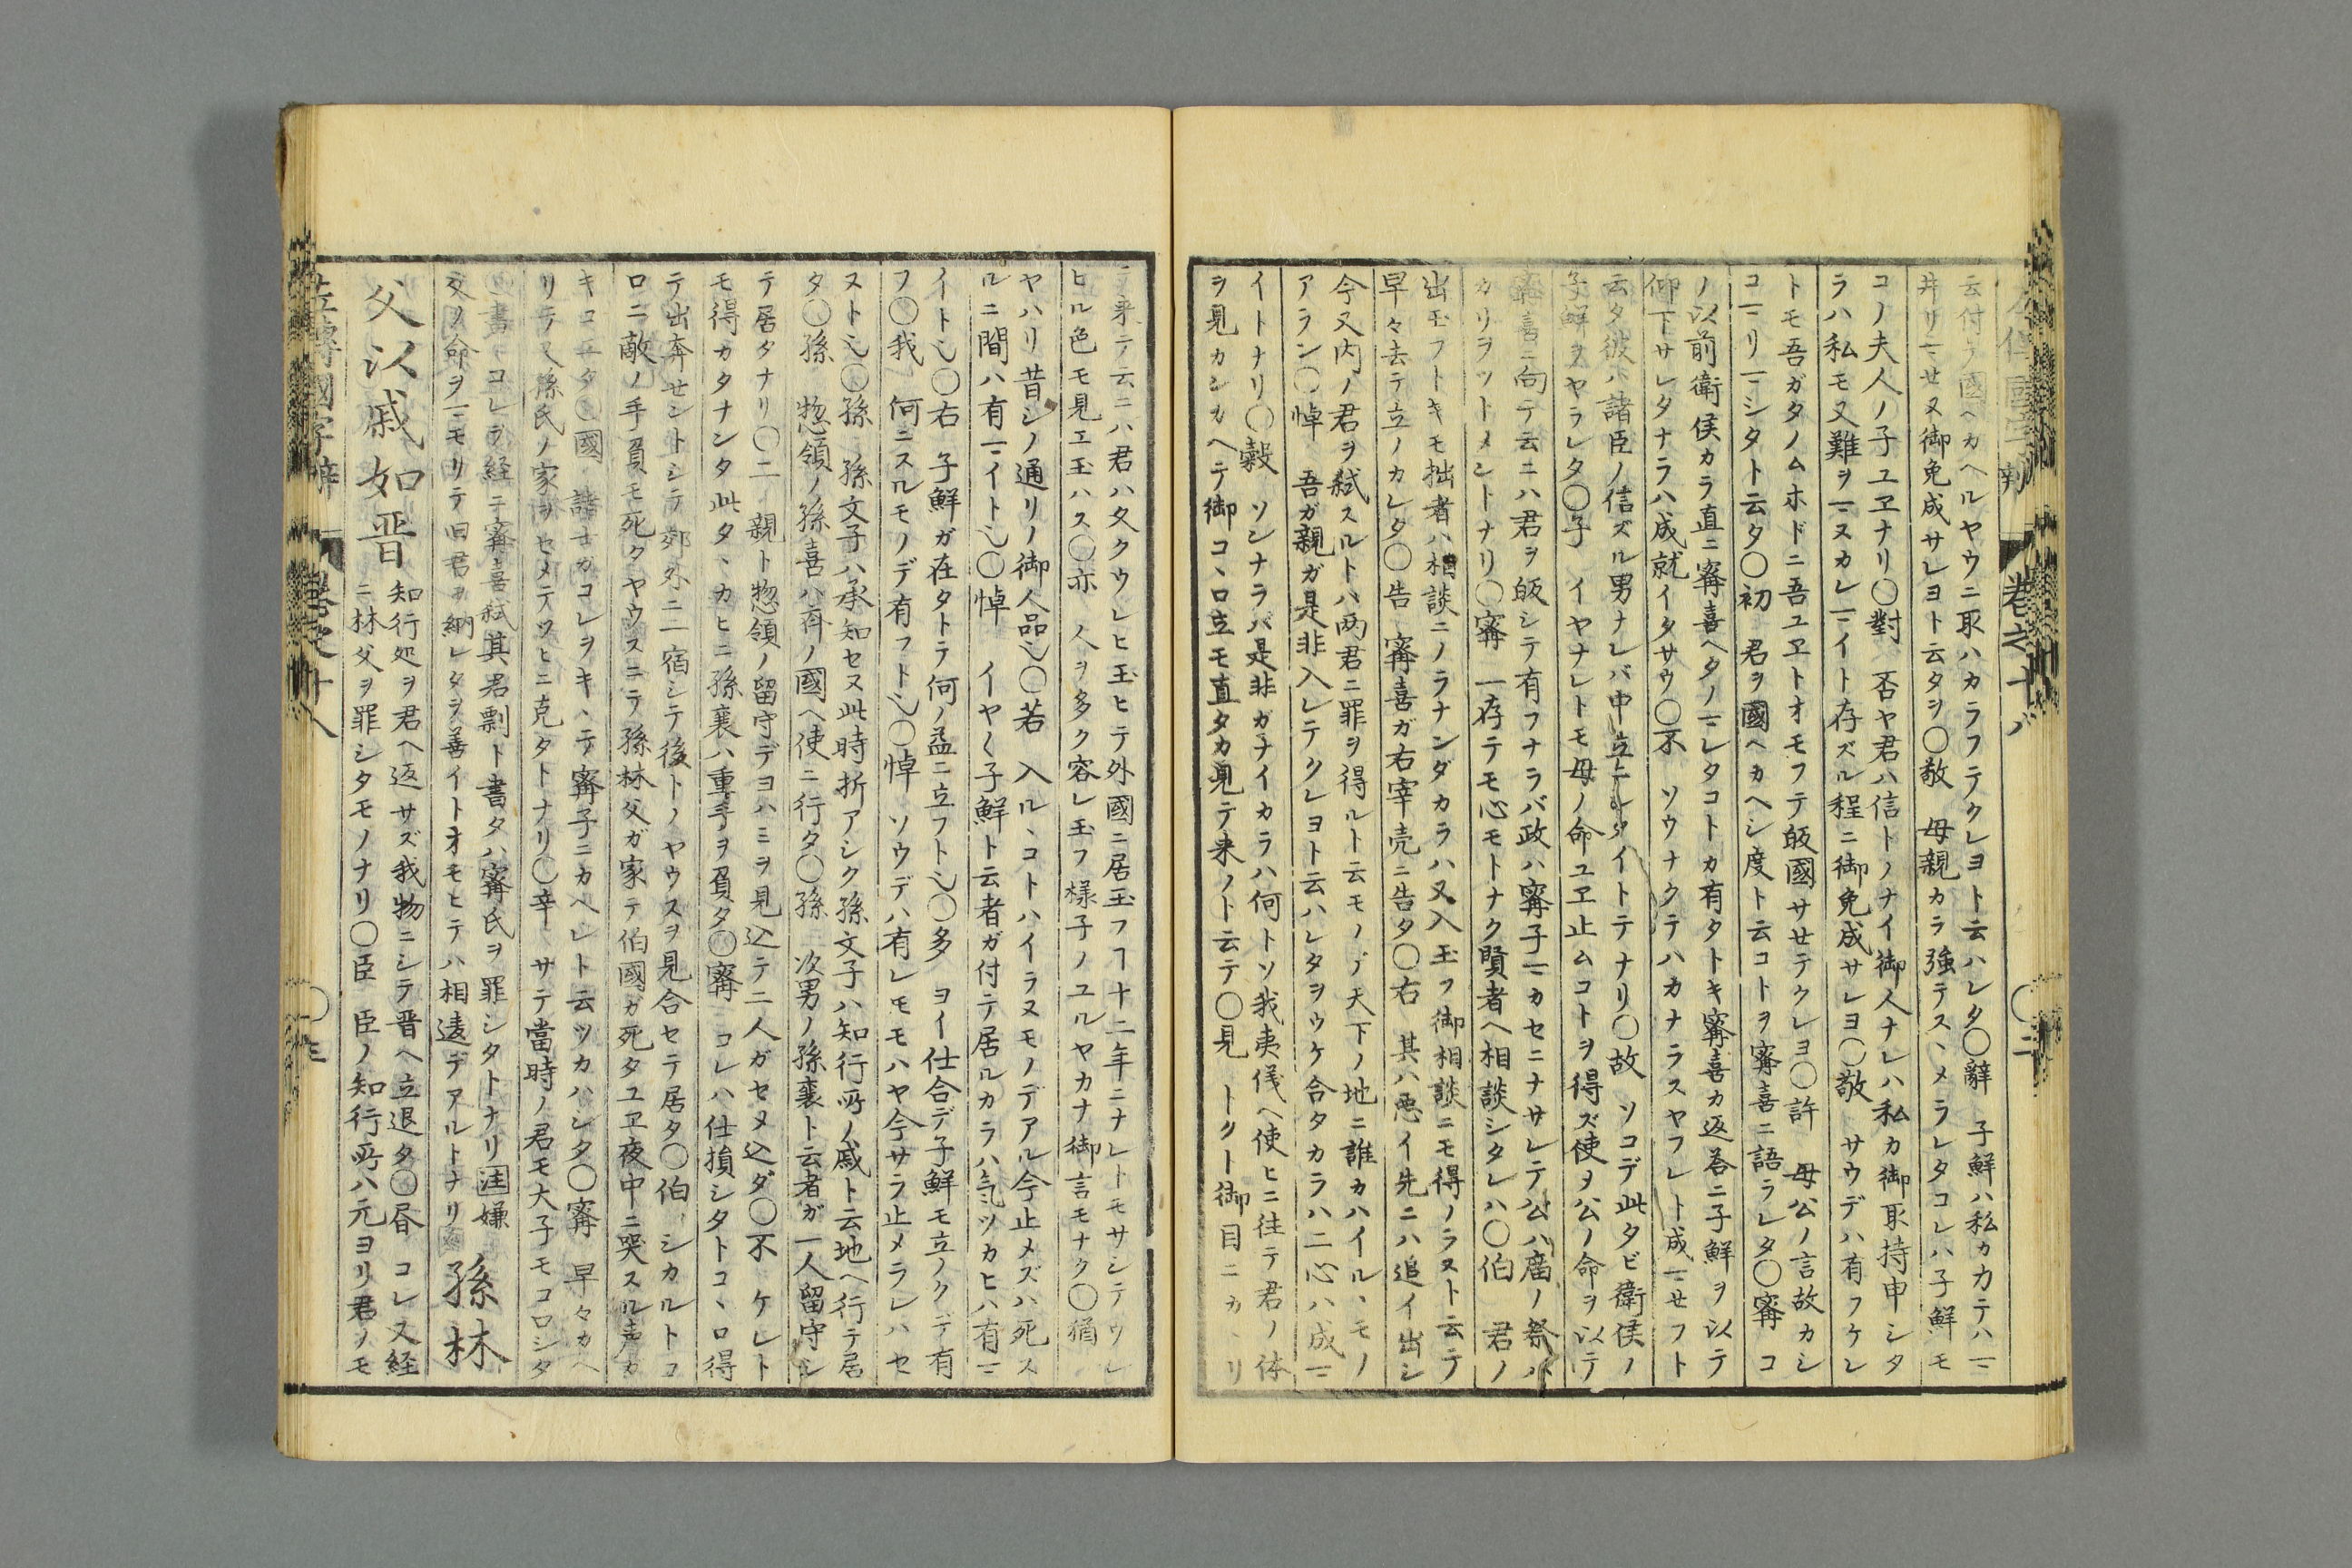 左傳國字辨 巻之十八 〇三
云付テ國ヘカヘルヤウニ取ハカラフテクレヨト云ハレタ〇辭 子鮮ハ私カ力テハ𬼀
井リ𬼀セヌ御免成サレヨト云タヲ〇敬 母親カラ強テスヽメラレタコレハ子鮮モ
コノ夫人ノ子ユヱナリ〇對 否ヤ君ハ信トノナイ御人ナレハ私カ御取持申シタ
ラハ私モ又難ヲ𬼀ヌカレ𬼀イト存ズル程ニ御免成サレヨ〇敬 サウデハ有フケレ
トモ吾ガタノムホドニ吾ユヱトオモフテ皈國サセテクレヨ〇許 母公ノ言故カシ
コ𬼀リ𬼀シタト云タ〇初 君ヲ國ヘカヘシ度ト云コトヲ寗喜ニ語ラレタ〇寗 コ
ノ以前衛侯カラ直ニ寗喜ヘタノ𬼀レタコトカ有タトキ寗喜カ返荅ニ子鮮ヲ以テ
仰下サレタナラハ成就イタサウ〇不 ソウナクテハカナラスヤフレト成𬼀セフト
云タ彼ハ諸臣ノ信ズル男ナレバ中立ニシタイトテナリ〇故 ソコデ此タビ衛侯ノ
子鮮ヲヤラレタ〇子 イヤナレトモ母ノ命ユヱ止ムコトヲ得ズ使ヲ公ノ命ヲ以テ
寗喜ニ向テ云ニハ君ヲ皈シテ有フナラバ政ハ寗子𬼀カセニナサレテ公ハ廟ノ祭バ
カリヲツトメントナリ〇寗 一存テモ心モトナク賢者ヘ相談シタレハ〇伯 君ノ
出玉フトキモ拙者ハ相談ニノラナンダカラハ又入玉フ御相談ニモ得ノラヌト云テ
早々去テ立ノカレタ〇告 寗喜ガ右宰壳ニ告タ〇右 其ハ悪イ先ニハ追イ出シ
今又内ノ君ヲ弑スルトハ両君ニ罪ヲ得ルト云モノデ天下ノ地ニ誰カハイルヽモノ
アラン〇悼 吾ガ親ガ是非入レテクレヨト云ハレタヲウケ合タカラハ二心ハ成𬼀
イトナリ〇穀 ソンナラバ是非ガナイカラハ何トソ我夷儀ヘ使ヒニ往テ君ノ体
ヲ見カンカヘテ御コヽロ立モ直タカ見テ来ノト云テ〇見 トクト御目ニカヽリ
テ来テ云ニハ君ハ久クウレヒ玉ヒテ外國ニ居玉フヿ十二年ニナレトモサシテウレ
ヒル色モ見エ玉ハス〇亦 人ヲ多ク容レ玉フ様子ノユルヤカナ御言モナク〇猶
ヤハリ昔シノ通リノ御人品也〇若 入ルヽコトハイラヌモノデアル今止メズハ死ス
ルニ間ハ有𬼀イト也〇悼 イヤく子鮮ト云者ガ付テ居ルカラハ気ツカヒハ有𬼀
イト也〇右 子鮮ガ在タトテ何ノ益ニ立フト也〇多 ヨイ仕合デ子鮮モ立ノクデ有
フ〇我 何ニスルモノデ有フト也〇悼 ソウデハ有レモモハヤ今サラ止メラレハセ
ヌト也〇孫 孫文子ハ承知セヌ此時折アシク孫文子ハ知行所ノ戚ト云地ヘ行テ居
タ〇孫 惣領ノ孫喜ハ斉ノ國ヘ使ニ行タ〇孫 次男ノ孫襄ト云者ガ一人留守シ
テ居タナリ〇二 親ト惣領ノ留守デヨハミヲ見込テ二人ガセメ込ダ〇不 ケレト
モ得カタナンタ此タヽカヒニ孫襄ハ重手ヲ負タ〇寗 コレハ仕損シタトコヽロ得
テ出奔セントシテ郊外ニ一宿シテ後トノヤウスヲ見合セテ居タ〇伯 シカルトコ
ロニ敵ノ手負モ死クヤウスニテ孫林父ガ家テ伯國ガ死タユヱ夜中ニ哭スル声カ
キコエタ〇國 諸士カコレヲキヽテ寗子ニカヘレト云ツカハシタ〇寗 早々カヘ
リテ又孫氏ノ家ヲセメテツヒニ克タトナリ〇辛 サテ當時ノ君モ大子モコロシタ
〇書 コレヲ経ニ寗喜弑其君剽ト書タハ寗氏ヲ罪シタトナリ 注 嫌
父ノ命ヲ𬼀モリテ旧君ヲ納レタヲ善イトオモヒテハ相違デアルトナリ 孫林
父以戚如晋
知行処ヲ君ヘ返サズ我物ニシテ晋ヘ立退タ〇昏 コレ又経
ニ林父ヲ罪シタモノナリ〇臣 臣ノ知行所ハ元ヨリ君ノモ
左傳國字辨 巻之十八 〇三